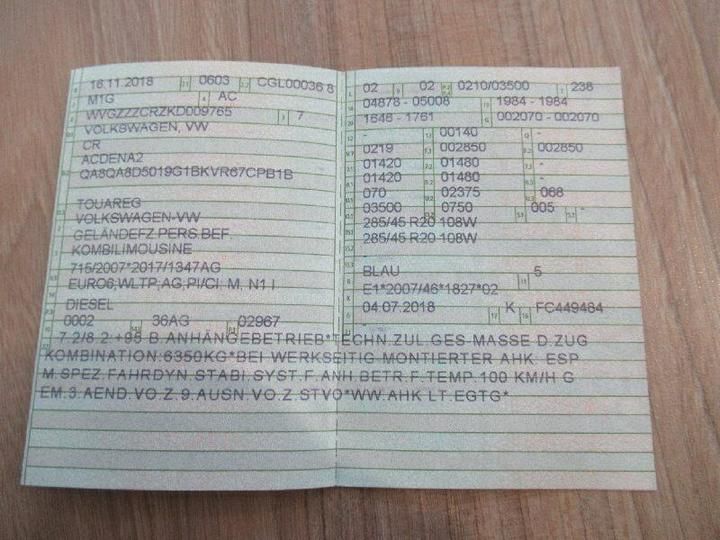 16.11.2018 0603 CGL00036 8
M1G AC
WVGZZZCRZKD009765 7
VOLKSWAGEN, VW
CR
ACDENA2
QA8QA8D5019G1BKVR67CPB1B
TOUAREG
VOLKSWAGEN-VW
GELÄNDEFZ.PERS.BEF.
KOMBILIMOUSINE
715/2007*2017/1347AG
EURO6;WLTP;AG;PI/CI: M, N1 I
DIESEL
0002 36AG 02967
02 02 0210/03500 238
04878 - 05008 1984 - 1984
1646 - 1761 002070 - 002070
- 00140 -
0219 002850 002850
01420 01480 -
01420 01480 -
070 02375 068
03500 0750 005 -
285/45 R20 108W
285/45 R20 108W
-
BLAU 5
E1*2007/46*1827*02
04.07.2018 K FC449484
-
7.2/8.2:+95 B.ANHÄNGEBETRIEB*TECHN.ZUL.GES.MASSE D.ZUG
KOMBINATION:6350KG*BEI WERKSEITIG MONTIERTER AHK: ESP
M.SPEZ.FAHRDYN.STABI.SYST.F.ANH.BETR.F.TEMP.100 KM/H G
EM.3.AEND.VO.Z.9.AUSN.VO.Z.STVO*WW.AHK LT.EGTG*